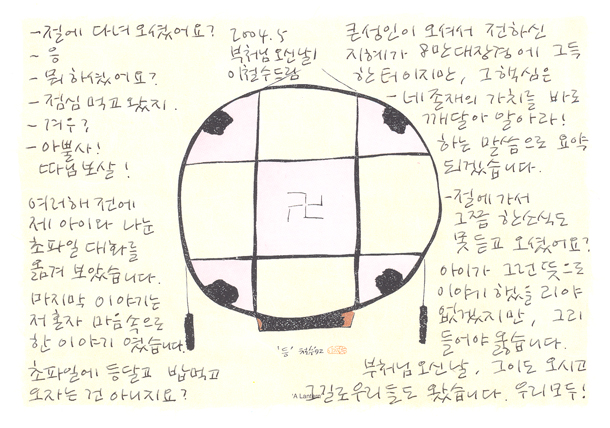 -절에 다녀 오셨어요?
- 응
- 뭐 하셨어요?
- 점심 먹고 왔지.
- 겨우?
- 아뿔사!
따님보살!
여러해 전에
제 아이와 나눈
초파일 대화를
옮겨 보았습니다.
마지막 이야기는
저 혼자 마음속으로
한 이야기 였습니다.
초파일에 등달고 밥먹고
오자는 건 아니지요?
2004.5
부처님오신날
이철수드림
큰성인이 오셔서 전하신
지혜가 8만대장경에 그득
한 터이지만, 그 핵심은
-네 존재의 가치를 바로
깨달아 알아라!
하는 말씀으로 요약
되겠습니다.
-절에 가서
그쯤 한소식도
못 듣고 오셨어요?
아이가 그런 뜻으로
이야기 했을 리야
없겠지만, 그리
들어야 옳습니다.
부처님오신날, 그이도 오시고
그길로 우리들도 왔습니다. 우리모두!
卍
'등'
'A Lantern'